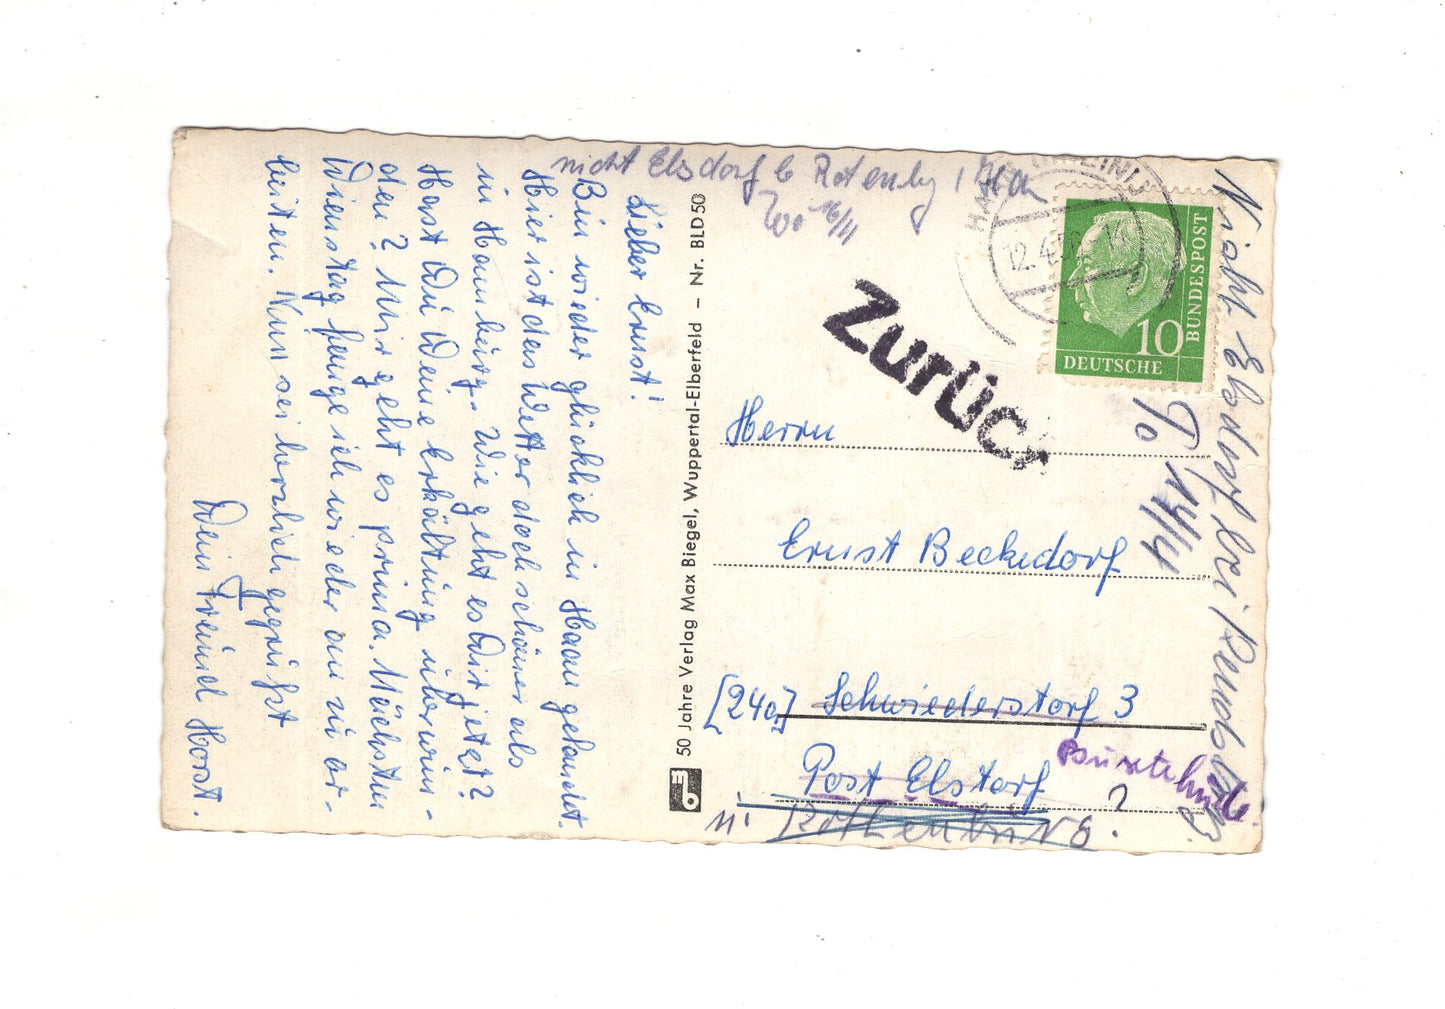 Lieber Ernst!
Bin wieder glücklich in Haan gelandet.
Hier ist das Wetter doch schöner als
in Hamburg. Wie geht es Dir jetzt?
Hast Du Deine Erkältung überwun-
den? Mir geht es prima. Nächsten
Dienstag fange ich wieder an zu ar-
beiten. Nun sei herzlich gegrüßt
Dein Freund Horst.
50 Jahre Verlag Max Biegel, Wuppertal-Elberfeld – Nr. BLD 50
nicht Elsdorf b Rotenbg / Han
16/4
HAAN
12.4.5
DEUTSCHE
BUNDESPOST
10
Zurück
Herrn
Ernst Beckedorf
[24a] Schwiederstorf 3
Post Elstorf
Buxtehude
?
Rothenburg
Nicht Elsdorf bei Rendsburg
To 14/4